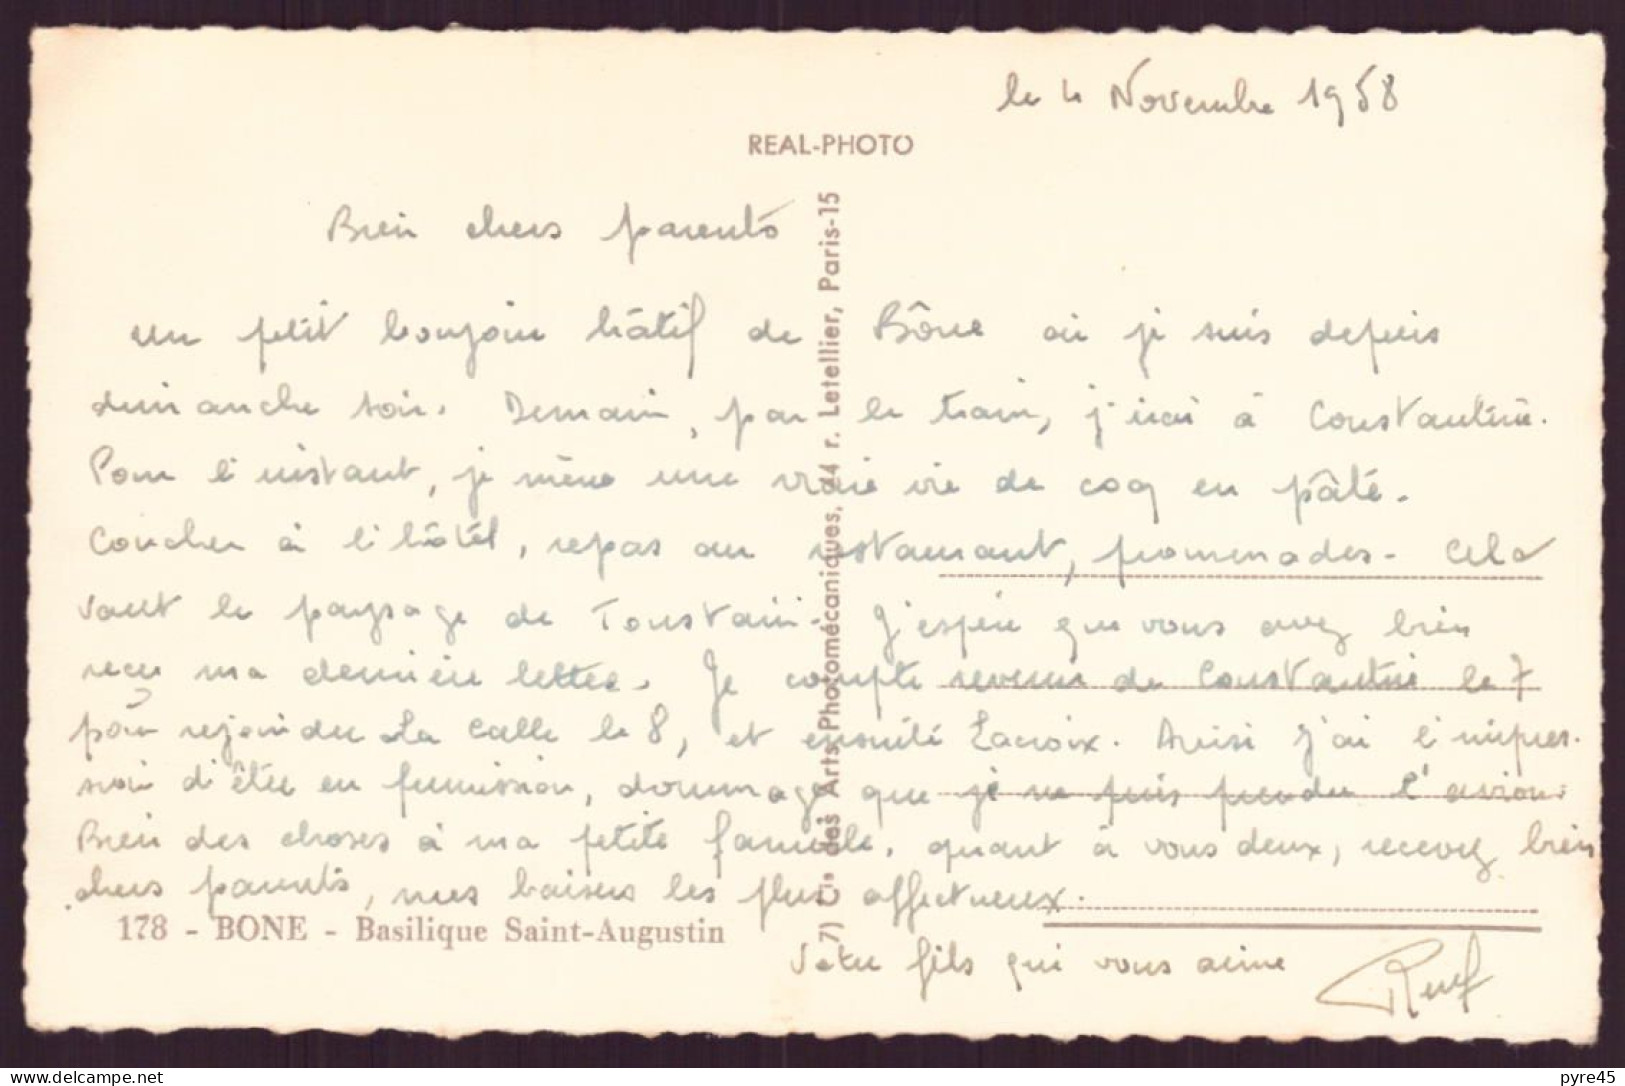 le 4 Novembre 1958
REAL-PHOTO
Bien chers parents
un petit bonjour hâtif de Bône où je suis depuis
dimanche soir. Demain, par le train, j'irai à Constantine.
Pour l'instant, je mène une vraie vie de coq en pâte.
Coucher à l'hôtel, repas au restaurant, promenades. Cela
vaut le paysage de Toustain. J'espère que vous avez bien
reçu ma dernière lettre. Je compte revenir de Constantine le 7
pour rejoindre La Calle le 8, et ensuite Lacroix. Ainsi j'ai l'impres-
sion d'être en permission, dommage que je ne puis prendre l'avion.
Bien des choses à ma petite famille, quant à vous deux, recevez bien
chers parents, mes baisers les plus affectueux.
178 - BONE - Basilique Saint-Augustin
Votre fils qui vous aime
Cie des Arts Photomécaniques, 44 r. Letellier, Paris-15